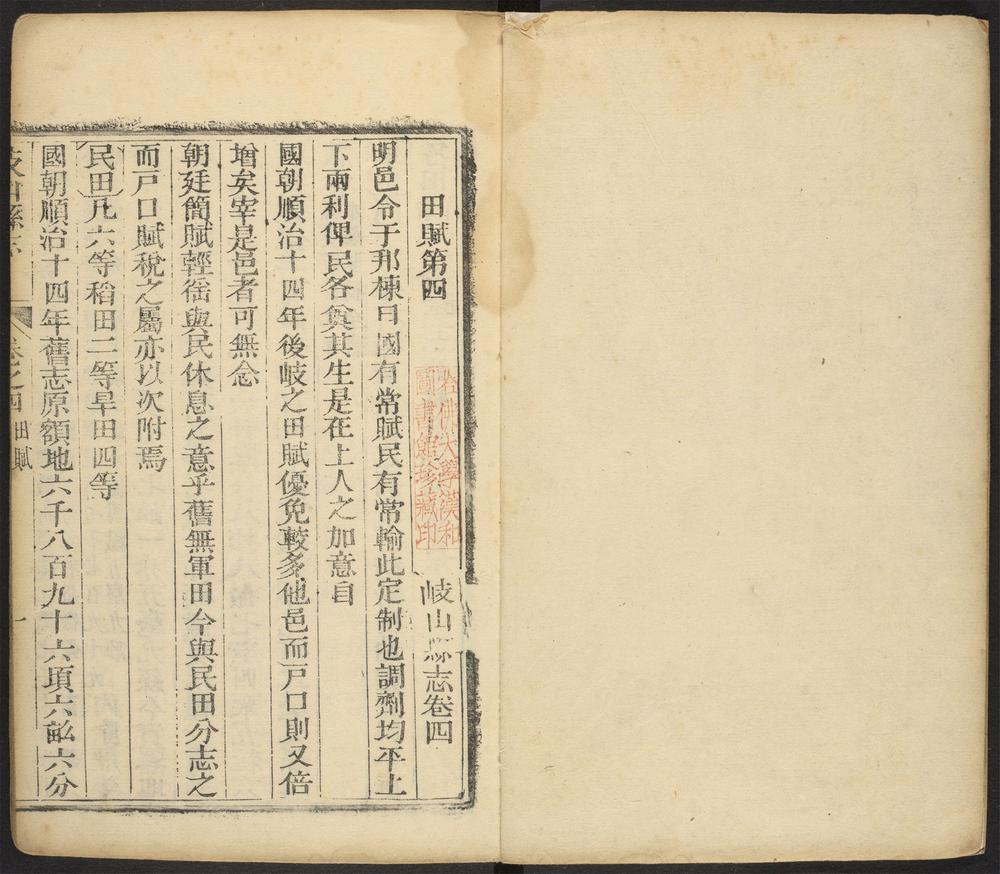 田賦第四
岐山縣志卷四
哈佛大學漢和
圖書館珍藏印
明邑令于邦棟曰國有常賦民有常輸此定制也調劑均平上
下兩利俾民各奠其生是在上人之加意自
國朝順治十四年後岐之田賦優免較多他邑而戸口則又倍
增矣宰是邑者可無念
朝廷簡賦輕徭與民休息之意乎舊無軍田今與民田分志之
而戸口賦稅之屬亦以次附焉
民田凡六等稻田二等旱田四等
國朝順治十四年舊志原額地六千八百九十六頃六畝六分
岐山縣志
卷之四
田賦
一